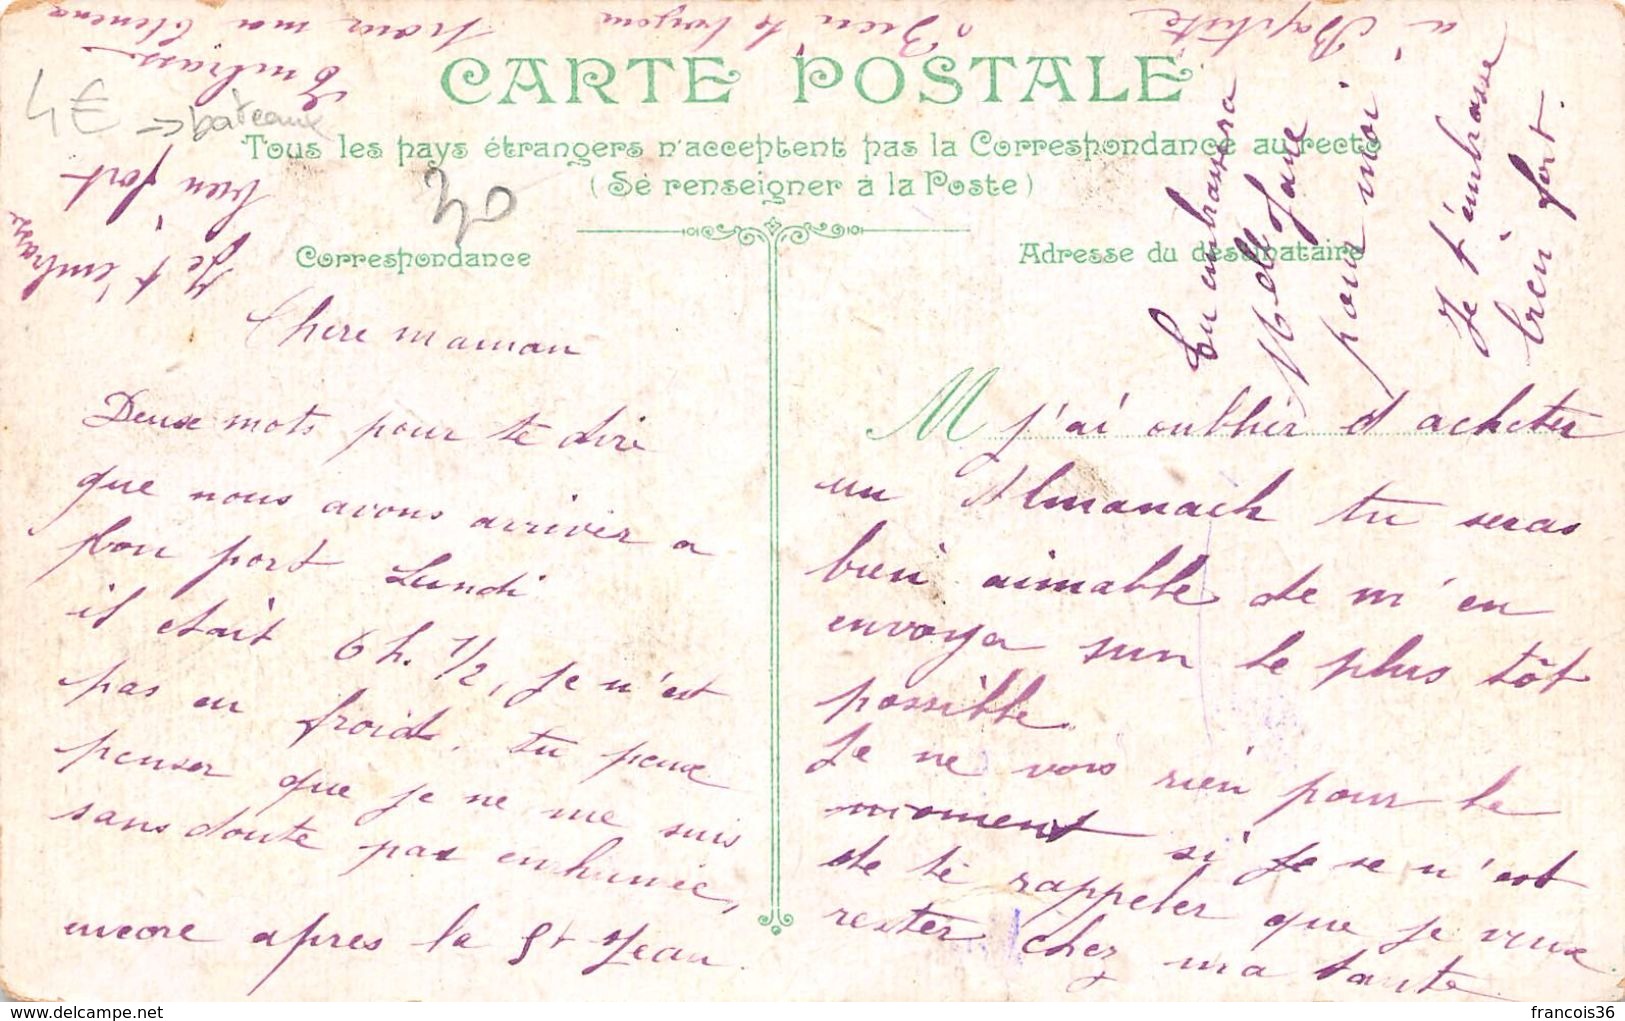 CARTE POSTALE
Tous les pays étrangers n'acceptent pas la Correspondance au recto
(Se renseigner à la Poste)
Correspondance
Adresse du destinataire
4€ → bateaux
30
Chere maman
Deux mots pour te dire
que nous avons arriver a
bon port Lundi
il etait 6 h. 1/2, je n'est
pas eu froid. tu peux
penser que je ne me suis
sans doute pas enhumée,
encore apres la St Jean
M j'ai oublier d acheter
un Almanach tu seras
bien aimable de m'en
envoyer un le plus tôt
possible
Je ne vois rien pour le
moment si je ne n'est
de te rappeler que je veux
rester chez ma tante
Tu embrassera
Melle Jane
pour moi
Je t'embrasse
bien fort.
à Baptiste
Bien le bonjour
pour moi
Embrasse
Je t'embrasse
bien fort
francois36